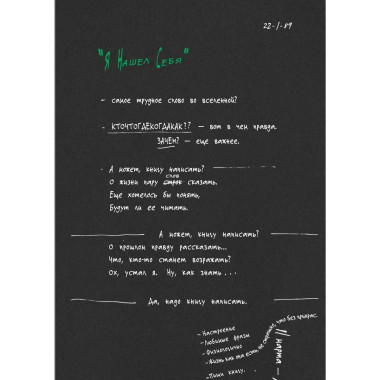 22-1-89
"Я Нашел Себя"
- самое трудное слово во вселенной?
- КТОЧТОГДЕКОГДАКАК?? - вот в чем правда.
ЗАЧЕМ? - еще важнее.
- А может, книгу написать?
слов
О жизни пару строк сказать.
Еще хотелось бы понять,
Будут ли ее читать.
А может, книгу написать?
О прошлом правду рассказать...
Что, кто-то станет возражать?
Ох, устал я. Ну, как знать...
Да, надо книгу написать.
- Настроение
- Любимые фразы
- Физиологично
- Жизнь как та есть, не смотрите, что без прикрас.
- Пиши книгу.
// марта -